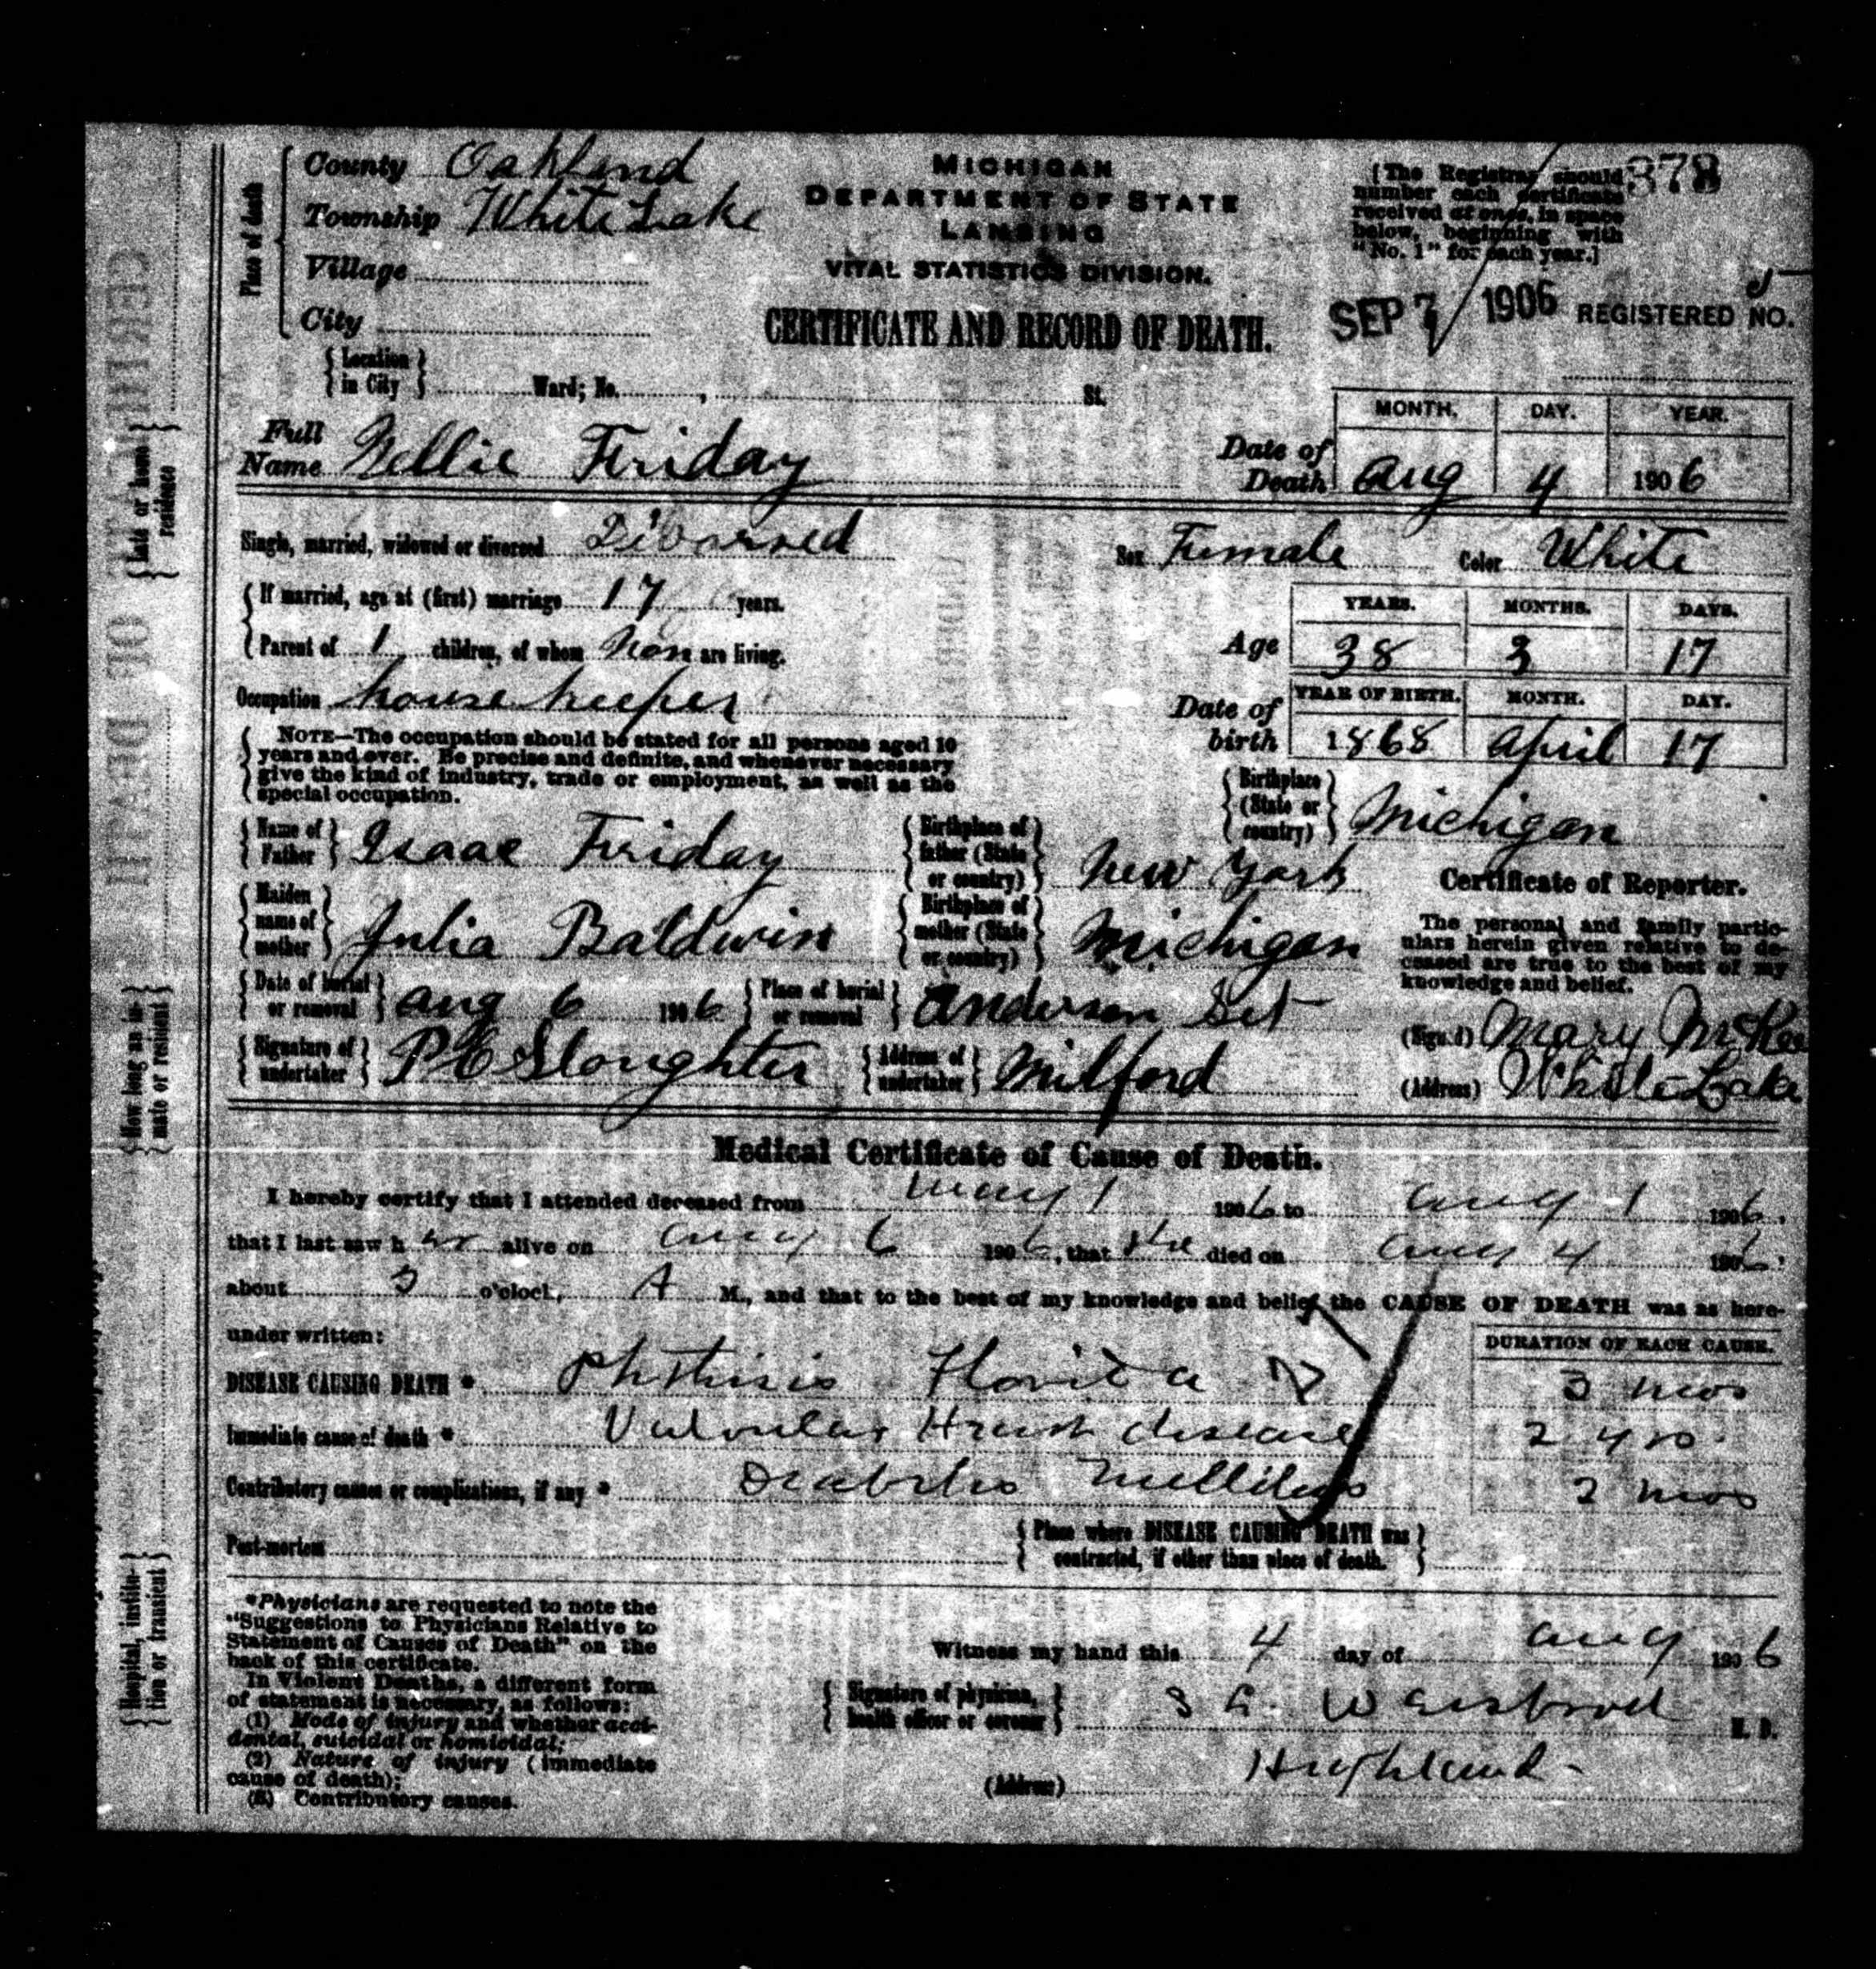 County Oakland
Township White Lake
Village
City
Place of death
MICHIGAN
DEPARTMENT OF STATE
LANSING
VITAL STATISTICS DIVISION.
CERTIFICATE AND RECORD OF DEATH.
[The Registrar should
number each certificate
received at once, in space
below, beginning with
"No. 1" for each year.]
378
SEP 7 1906 REGISTERED NO.
5
Location in City Ward; No. , St.
Full Name Nellie Friday
Date of Death MONTH. DAY. YEAR.
Aug 4 1906
Single, married, widowed or divorced Divorsed Sex Female Color White
If married, age at (first) marriage 17 years.
Parent of 1 children, of whom Non are living.
Age YEARS. MONTHS. DAYS.
38 3 17
Occupation house keeper
Date of birth YEAR OF BIRTH. MONTH. DAY.
1868 April 17
NOTE—The occupation should be stated for all persons aged 10
years and over. Be precise and definite, and whenever necessary
give the kind of industry, trade or employment, as well as the
special occupation.
Birthplace (State or country) Michigan
Name of Father Isaac Friday
Birthplace of father (State or country) New York
Maiden name of mother Julia Baldwin
Birthplace of mother (State or country) Michigan
Certificate of Reporter.
The personal and family partic-
ulars herein given relative to de-
ceased are true to the best of my
knowledge and belief.
(Signed) Mary McKee
(Address) White Lake
Date of burial or removal Aug 6 1906 Place of burial or removal Anderson Set
Signature of undertaker P E Sloughter Address of undertaker Milford
Medical Certificate of Cause of Death.
I hereby certify that I attended deceased from May 1 1906 to Aug 1 1906,
that I last saw her alive on Aug 6 1906, that she died on Aug 4 1906,
about 3 o'clock, A M., and that to the best of my knowledge and belief the CAUSE OF DEATH was as here-
under written:
DURATION OF EACH CAUSE.
DISEASE CAUSING DEATH * Phthisis Florida 3 mos
Immediate cause of death * Valvular Heart disease 2 yrs.
Contributory causes or complications, if any * Diabetes Mellitus 2 mos
Post-mortem
Place where DISEASE CAUSING DEATH was
contracted, if other than place of death.
*Physicians are requested to note the
"Suggestions to Physicians Relative to
Statement of Causes of Death" on the
back of this certificate.
In Violent Deaths, a different form
of statement is necessary, as follows:
(1) Mode of injury and whether acci-
dental, suicidal or homicidal;
(2) Nature of injury (immediate
cause of death);
(3) Contributory causes.
Witness my hand this 4 day of Aug 1906
Signature of physician, health officer or coroner M. D.
(Address) Highland
Late or home residence
How long an in-
mate or resident
Hospital, institu-
tion or transient